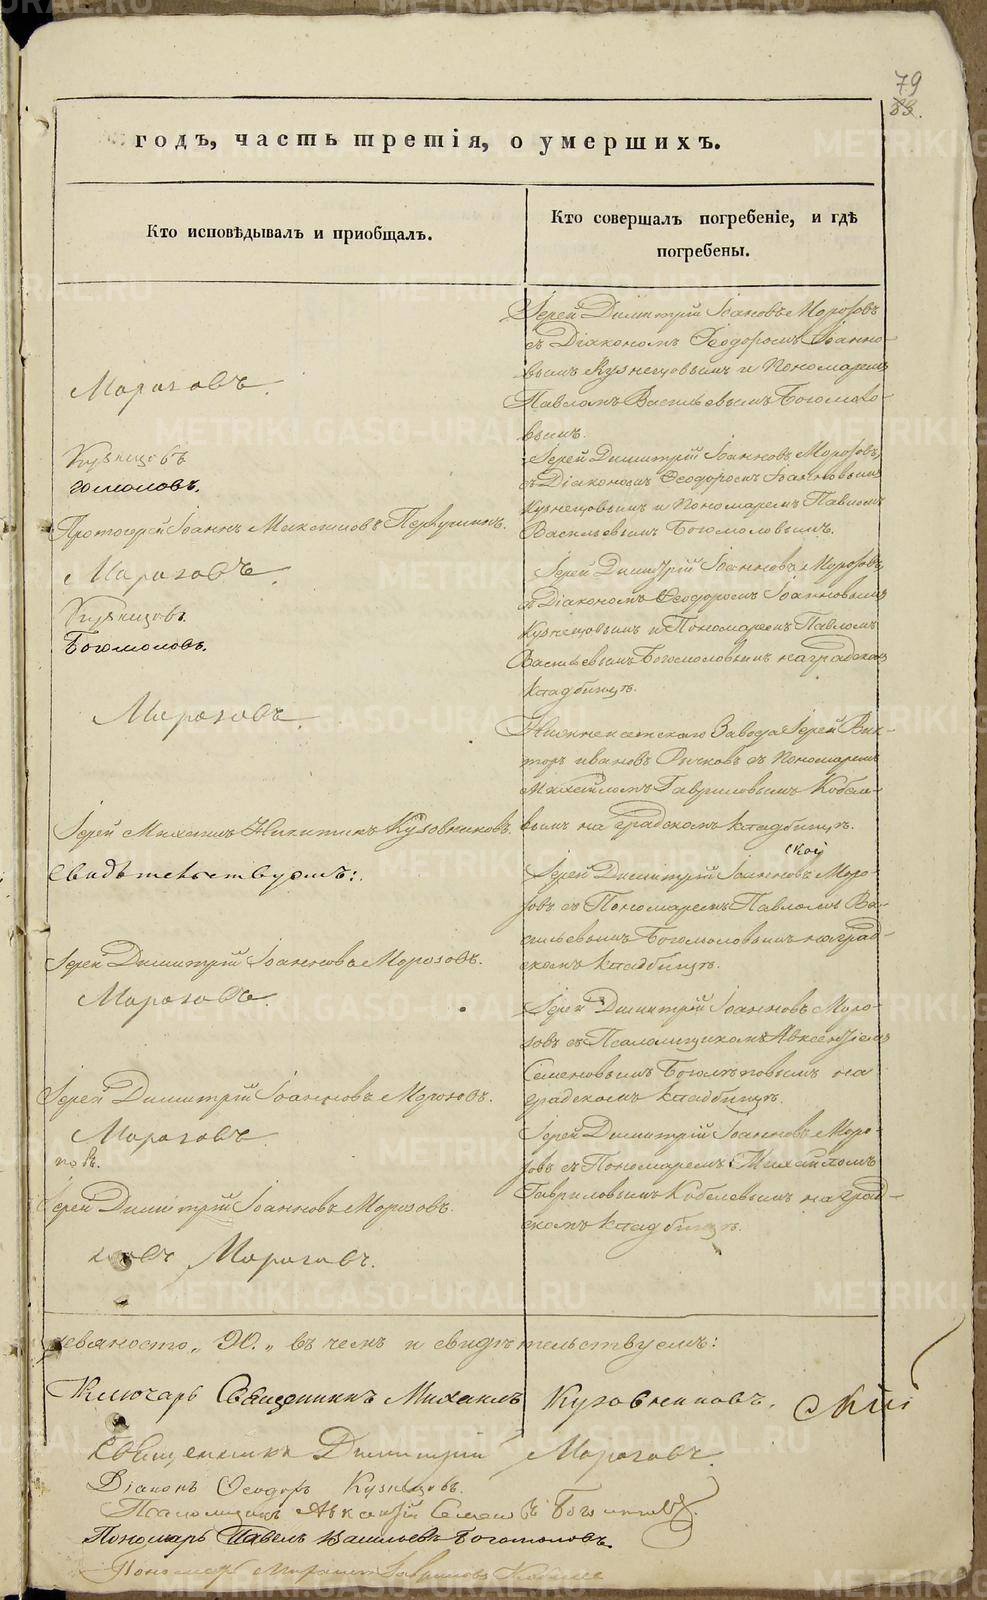 79
83.
годъ, часть третія, о умершихъ.
Кто исповѣдывалъ и приобщалъ.
Кто совершалъ погребеніе, и гдѣ
погребены.
Морозовъ.
Кузнецовъ
гомоловъ.
Протоіерей Іоаннъ Первушинъ.
Морозовъ.
Кузнецовъ.
Богомоловъ.
Морозовъ.
Іерей Михаилъ Никитинъ Кузовниковъ.
Свидѣтельствуемъ:
Іерей Димитрій Іоанновъ Морозовъ.
Морозовъ.
Іерей Димитрій Іоанновъ Морозовъ.
Морозовъ
Іерей Димитрій Іоанновъ Морозовъ.
Морозовъ.
Іерей Димитрій Іоановъ Морозовъ
съ Діакономъ Ѳеодоромъ Іоанно-
вымъ Кузнецовымъ и Пономаремъ
Павломъ Васильевымъ Богомоло-
вымъ.
Іерей Димитрій Іоанновъ Морозовъ,
съ Діакономъ Ѳеодоромъ Іоанновымъ
Кузнецовымъ и Пономаремъ Павломъ
Васильевымъ Богомоловымъ.
Іерей Димитрій Іоанновъ Морозовъ,
съ Діакономъ Ѳеодоромъ Іоанновымъ
Кузнецовымъ и Пономаремъ Павломъ
Васильевымъ Богомоловымъ на градскомъ
кладбищѣ.
Завода Іерей Вик-
торъ Ивановъ съ Пономаремъ
Михаиломъ Гавриловымъ Кобеле-
вымъ на градскомъ кладбищѣ.
Іерей Димитрій Іоанновъ Моро-
зовъ съ Пономаремъ Павломъ Ва-
сильевымъ Богомоловымъ на град-
скомъ кладбищѣ.
Іерей Димитрій Іоанновъ Моро-
зовъ съ Псаломщикомъ Авксентіемъ
Семеновымъ Боголѣповымъ на
градскомъ кладбищѣ.
Іерей Димитрій Іоанновъ Моро-
зовъ съ Пономаремъ Михаиломъ
Гавриловымъ Кобелевымъ на град-
скомъ кладбищѣ.
девяносто „90.„ въ чемъ и свидѣтельствуемъ:
Ключарь Священникъ Михаилъ Кузовниковъ.
Священникъ Димитрій Морозовъ.
Діаконъ Ѳеодоръ Кузнецовъ.
Псаломщикъ Авксентій Семеновъ Боголѣповъ.
Пономарь Павелъ Васильевъ Богомоловъ.
Пономарь Михаилъ Гавриловъ Кобелевъ
METRIKI.GASO-URAL.RU